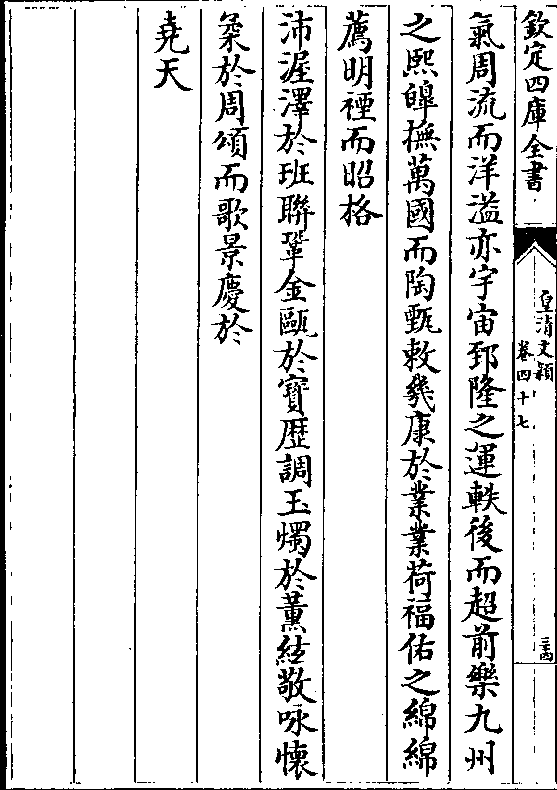 欽定四庫全書
皇清文穎
卷四十七
三四
氣周流而洋溢亦宇宙郅隆之運軼後而超前樂九州
之熙皥撫萬國而陶甄敕幾康於業業荷福佑之綿綿
薦明禋而昭格
沛渥澤於班聯鞏金甌於寶歴調玉燭於薰絃敬咏懷
柔於周頌而歌景慶於
堯天